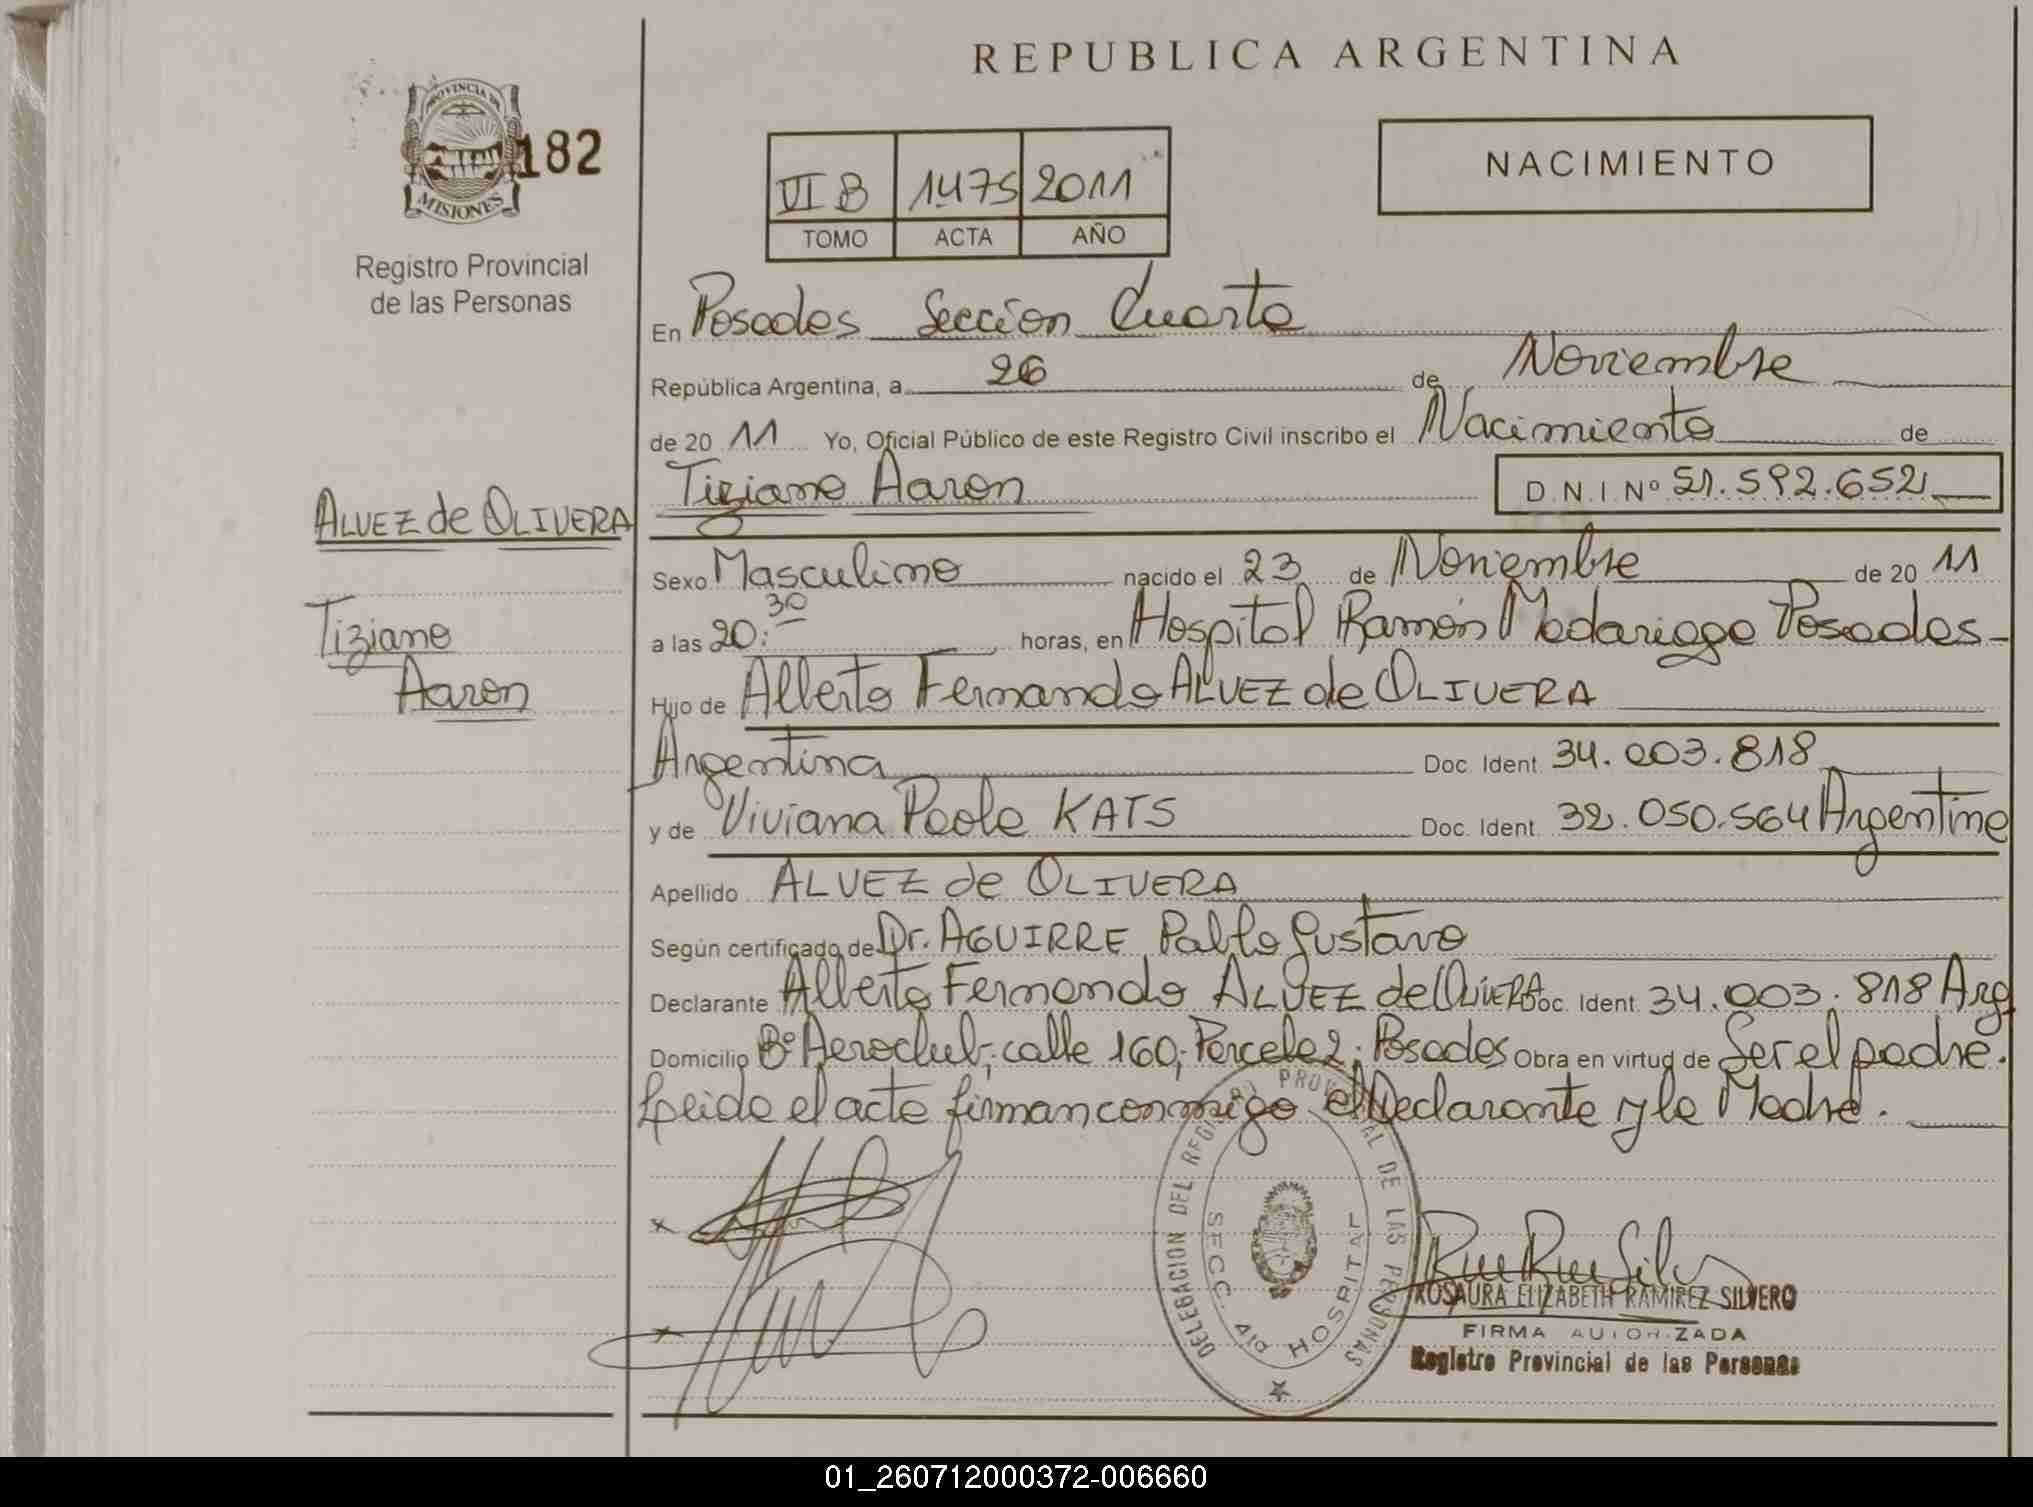 REPUBLICA ARGENTINA
PROVINCIA DE
MISIONES
182
Registro Provincial
de las Personas
VI B 1475 2011
TOMO ACTA AÑO
NACIMIENTO
En Posadas Sección Cuarta
República Argentina, a 26 de Noviembre
de 20 11 Yo, Oficial Público de este Registro Civil inscribo el Nacimiento de
Tiziano Aaron D.N.I. Nº 51.592.652
ALVEZ de OLIVERA
Tiziano
Aaron
Sexo Masculino nacido el 23 de Noviembre de 20 11
a las 20:30 horas, en Hospital Ramón Madariaga Posadas
Hijo de Alberto Fernando ALVEZ de OLIVERA
Argentina Doc. Ident. 34.003.818
y de Viviana Paola KATS Doc. Ident. 32.050.564 Argentina
Apellido ALVEZ de OLIVERA
Según certificado de Dr. AGUIRRE Pablo Gustavo
Declarante Alberto Fernando ALVEZ de OLIVERA Doc. Ident. 34.003.818 Arg
Domicilio Bº Aeroclub; calle 160; Parcela 2; Posadas Obra en virtud de Ser el padre.
Leida el acta firman conmigo el Declarante y la Madre.
DELEGACION DEL REGISTRO PROVINCIAL DE LAS PERSONAS
SECC. 4ta HOSPITAL
ROSAURA ELIZABETH RAMIREZ SILVERO
FIRMA AUTORIZADA
Registro Provincial de las Personas
01_260712000372-006660